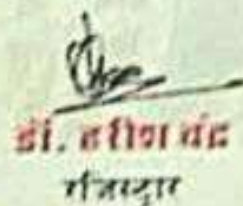 डॉ. हरीश चंद्र
रजिस्ट्रार